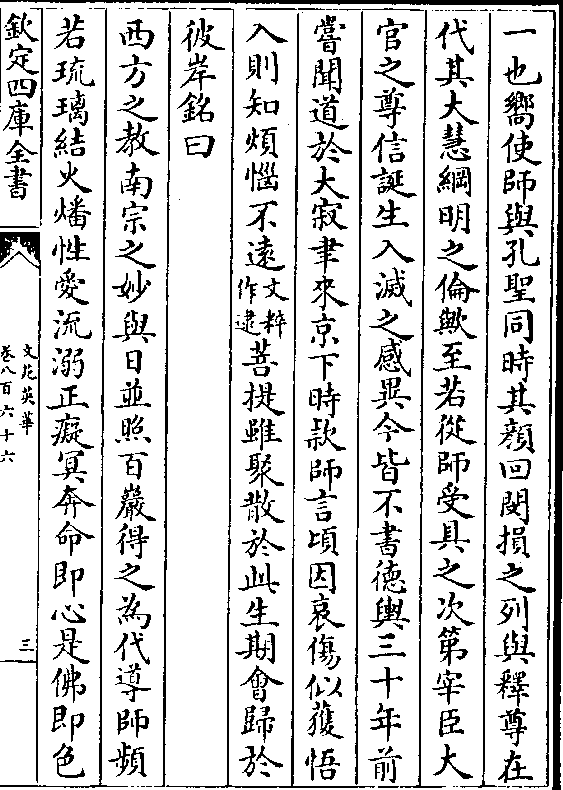 一也嚮使師與孔聖同時其顔回閔損之列與釋尊在
代其大慧綱明之倫歟至若從師受具之次第宰臣大
官之尊信誕生入滅之感異今皆不書德輿三十年前
嘗聞道於大寂聿來京下時款師言頃因哀傷似獲悟
入則知煩惱不遠文粹作逮菩提雖聚散於此生期會歸於
彼岸銘曰
西方之教南宗之妙與日並照百巖得之為代導師頻
若琉璃結火燔性愛流溺正癡冥奔命即心是佛即色
欽定四庫全書
文苑英華
卷八百六十六
三